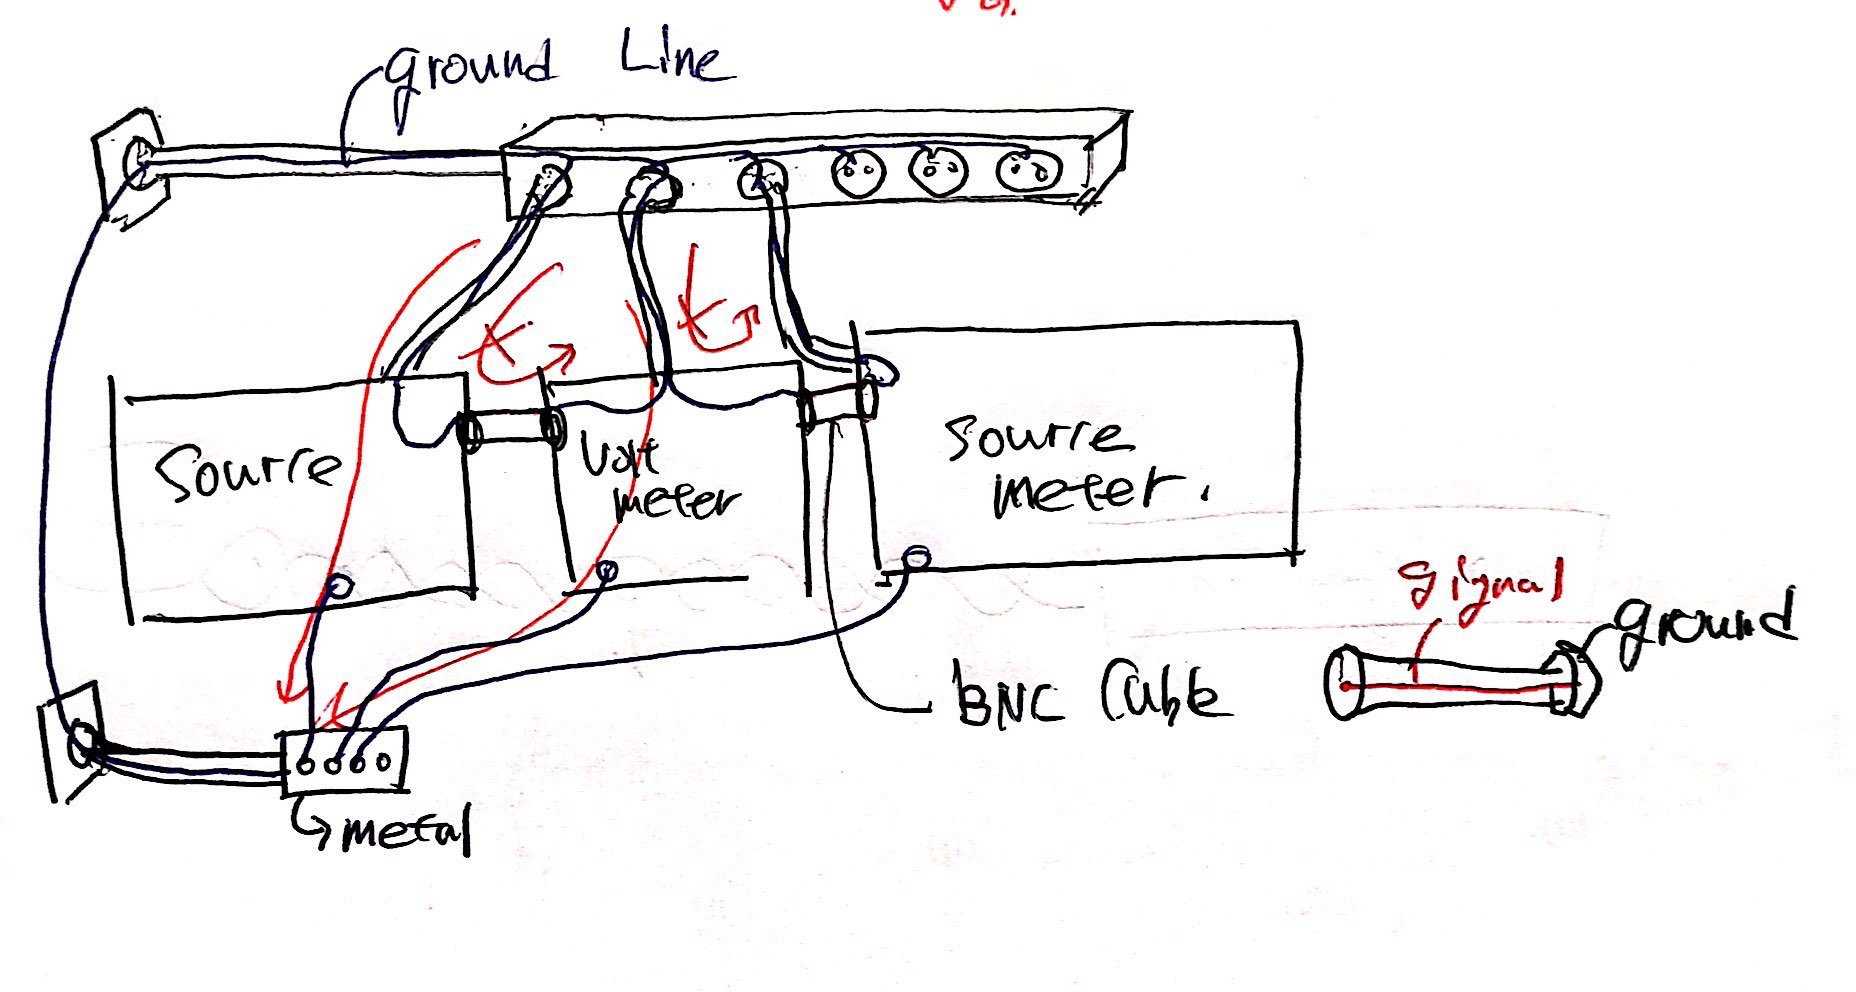 ground Line
Sourre
Volt
meter
Sourre
meter.
signal
ground
BNC Cable
metal